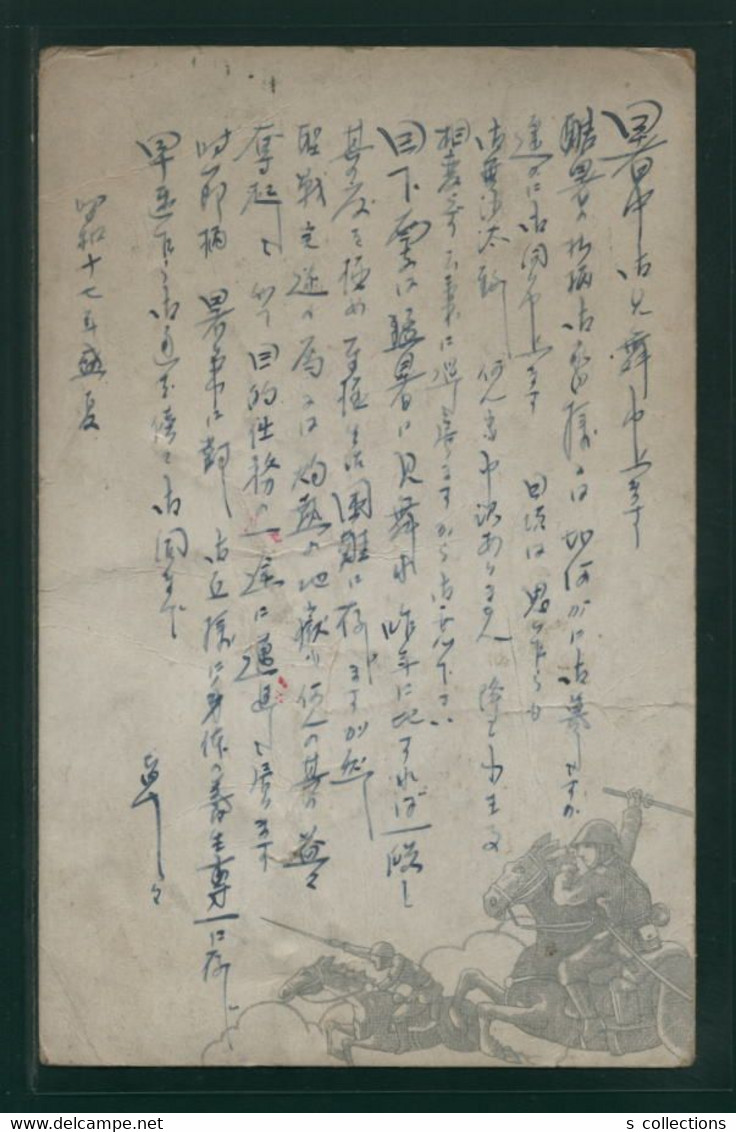 暑中御見舞申上ます
酷暑の折柄御皆様には如何がに御暮ですか
遥かに御伺申上ます 日頃は思ひ乍らも
御無沙汰致し 何んとも申訳ありません 降て小生
相変らず元気に御座ますから御安心下さい
目下 は猛暑に見舞れ 昨年に比すれば一段と
其の度を極め 生活困難に存じますが然し
聖戦完遂の為には灼熱の地獄も何んの其の 益々
奮起して 目的任務の一途に邁進して居ります
時節柄 暑気に対し 御身体の養生専一に存じ
早速 乍ら御 御伺まで
草々
昭和十七年盛夏
s collections